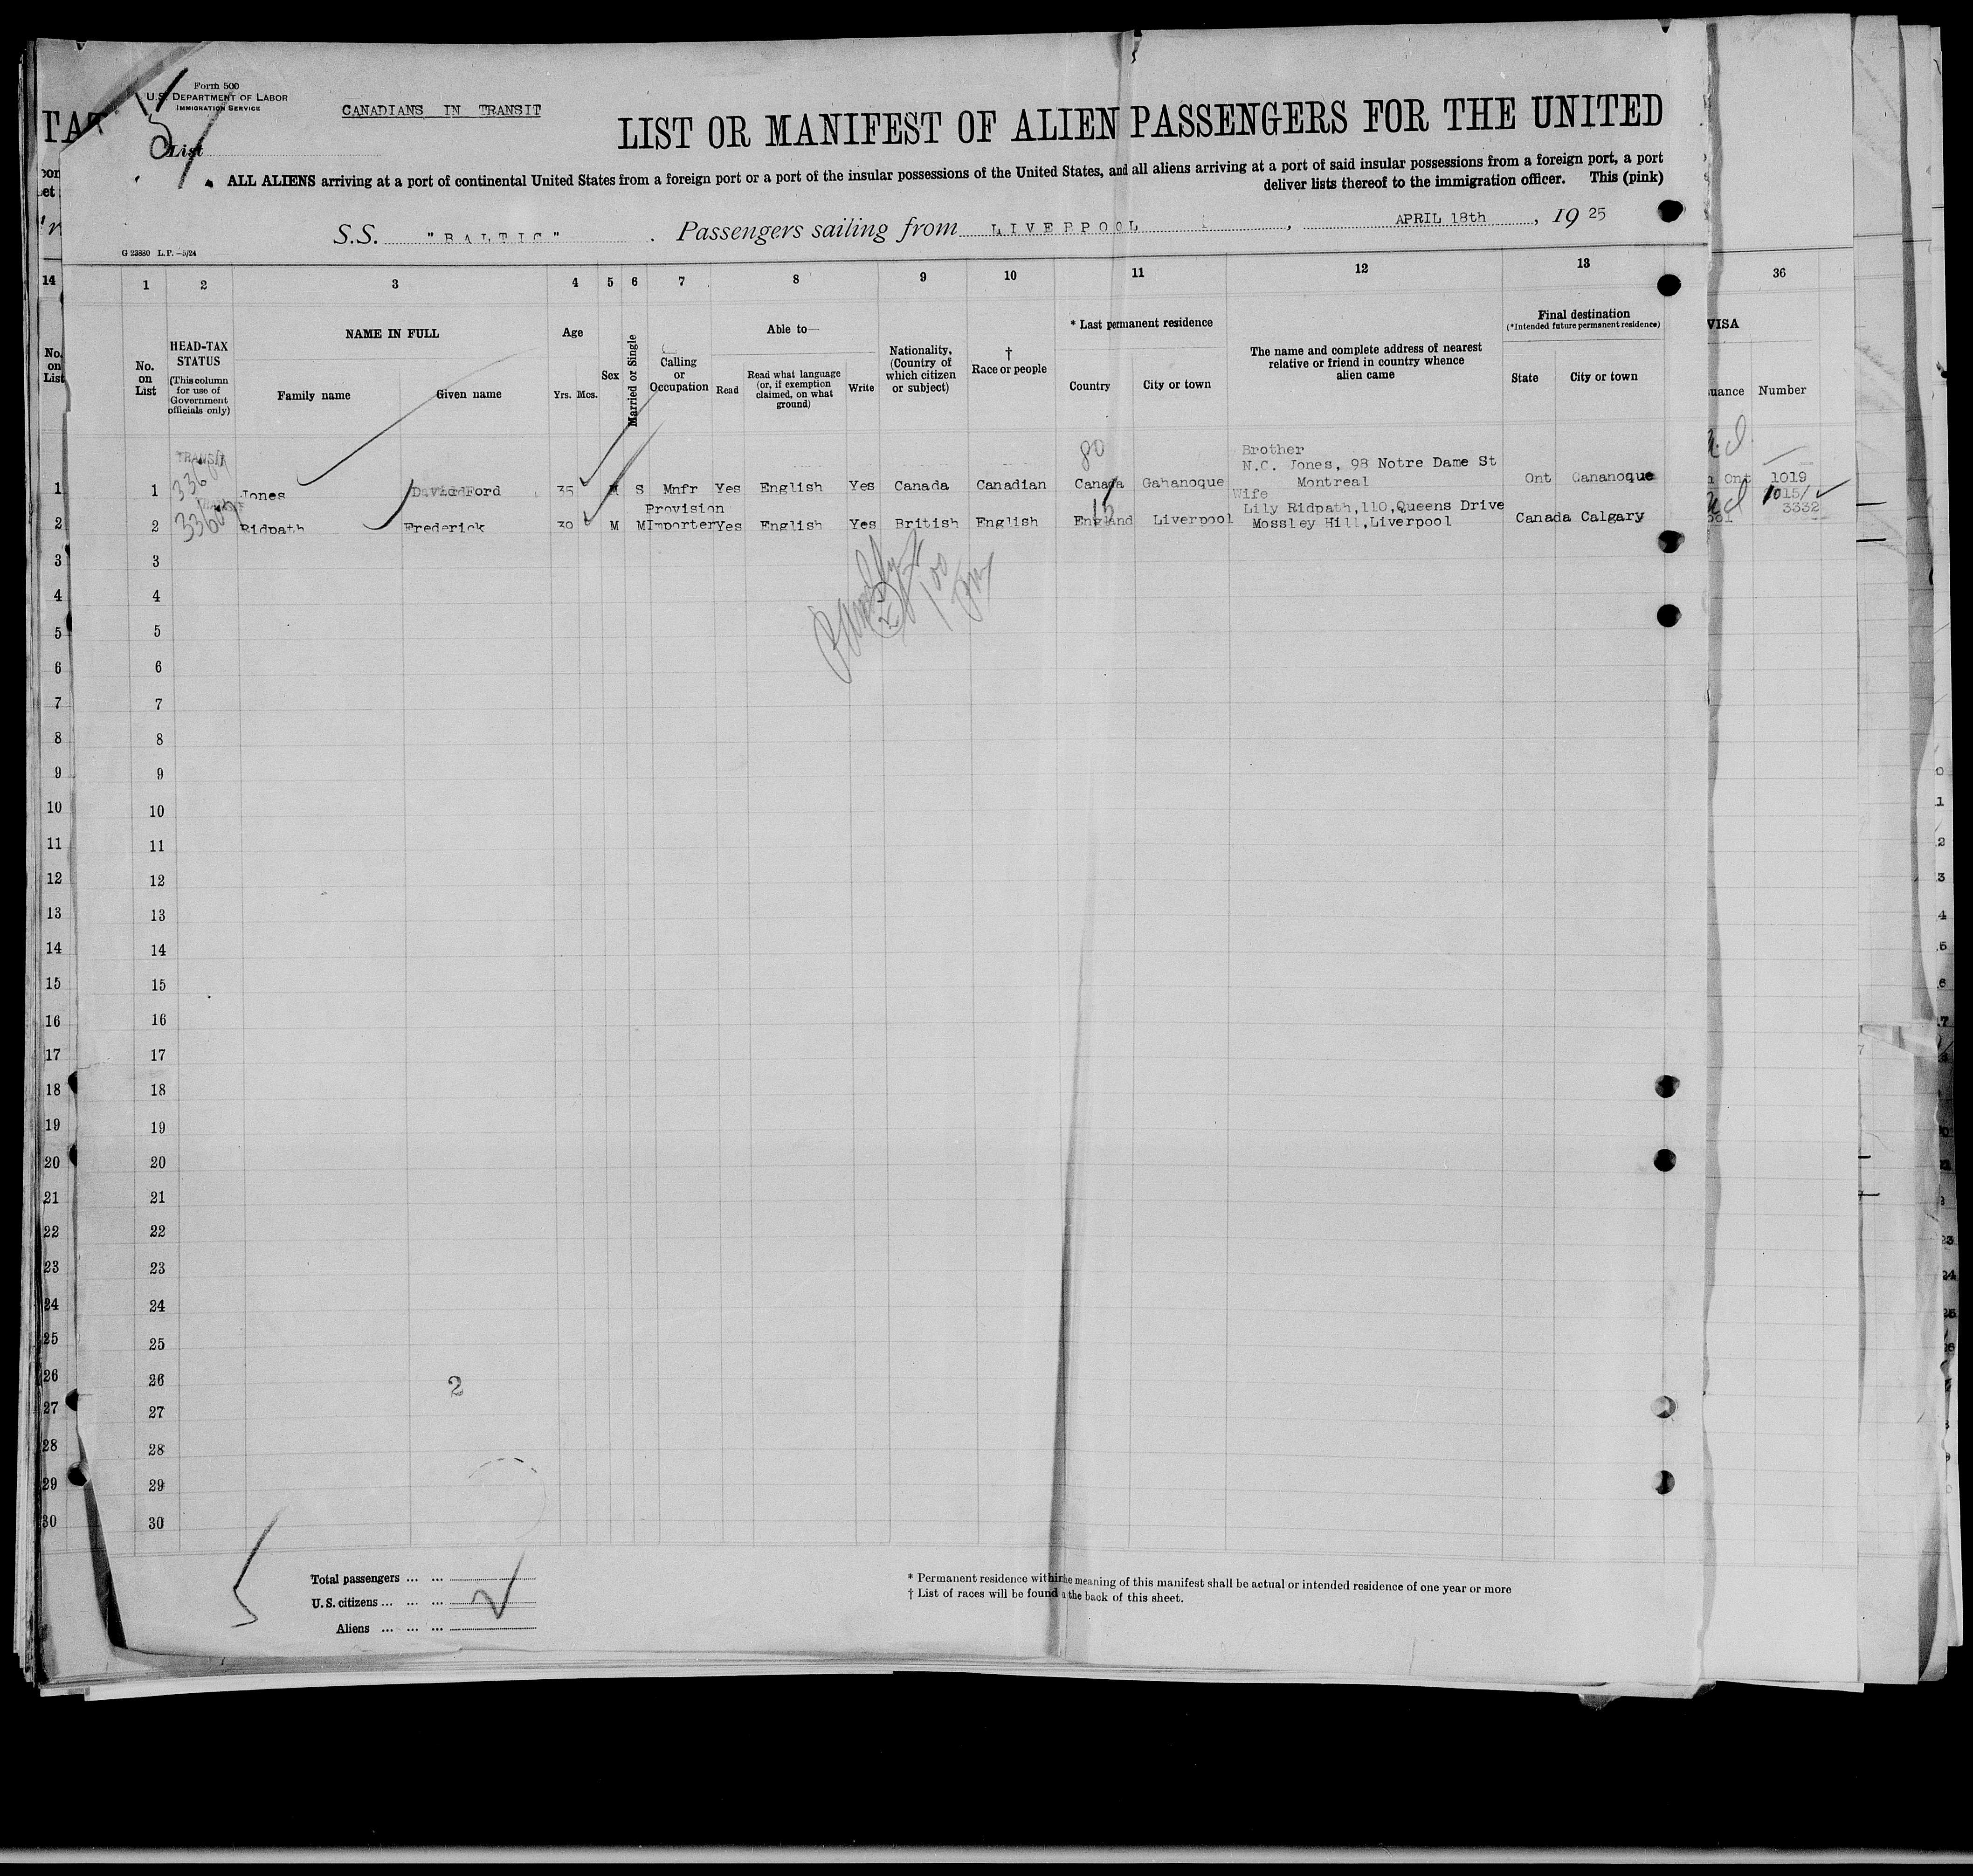 Form 500
U.S. DEPARTMENT OF LABOR
IMMIGRATION SERVICE
CANADIANS IN TRANSIT
LIST OR MANIFEST OF ALIEN PASSENGERS FOR THE UNITED
List
ALL ALIENS arriving at a port of continental United States from a foreign port or a port of the insular possessions of the United States, and all aliens arriving at a port of said insular possessions from a foreign port, a port
deliver lists thereof to the immigration officer. This (pink)
S.S. "BALTIC" . Passengers sailing from LIVERPOOL , APRIL 18th , 19 25
G 23880 L.P.—5/24
14 1 2 3 4 5 6 7 8 9 10 11 12 13 36
No. on List
No. on List
HEAD-TAX STATUS
(This column for use of Government officials only)
NAME IN FULL
Family name Given name
Age
Yrs. Mos.
Sex
Married or Single
Calling or Occupation
Able to—
Read
Read what language (or, if exemption claimed, on what ground)
Write
Nationality, (Country of which citizen or subject)
† Race or people
* Last permanent residence
Country City or town
The name and complete address of nearest relative or friend in country whence alien came
Final destination
(*Intended future permanent residence)
State City or town
VISA
Number
TRANSIT
80
Brother
N.C. Jones, 98 Notre Dame St
1 1 Jones David Ford 35 M S Mnfr Yes English Yes Canada Canadian Canada Gahanoque Montreal Ont Gananoque Ont 1019
Provision
Wife
Lily Ridpath,110,Queens Drive 1015/
3332
2 2 Ridpath Frederick 39 M M Importer Yes English Yes British English England Liverpool Mossley Hill,Liverpool Canada Calgary
3 3
4 4
5 5
6 6
7 7
8 8
9 9
10 10
11 11
12 12
13 13
14 14
15 15
16 16
17 17
18 18
19 19
20 20
21 21
22 22
23 23
24 24
25 25
26 26
2
27 27
28 28
29 29
30 30
Total passengers ... ...
U.S. citizens ... ... ...
Aliens ... ... ...
* Permanent residence within the meaning of this manifest shall be actual or intended residence of one year or more
† List of races will be found on the back of this sheet.